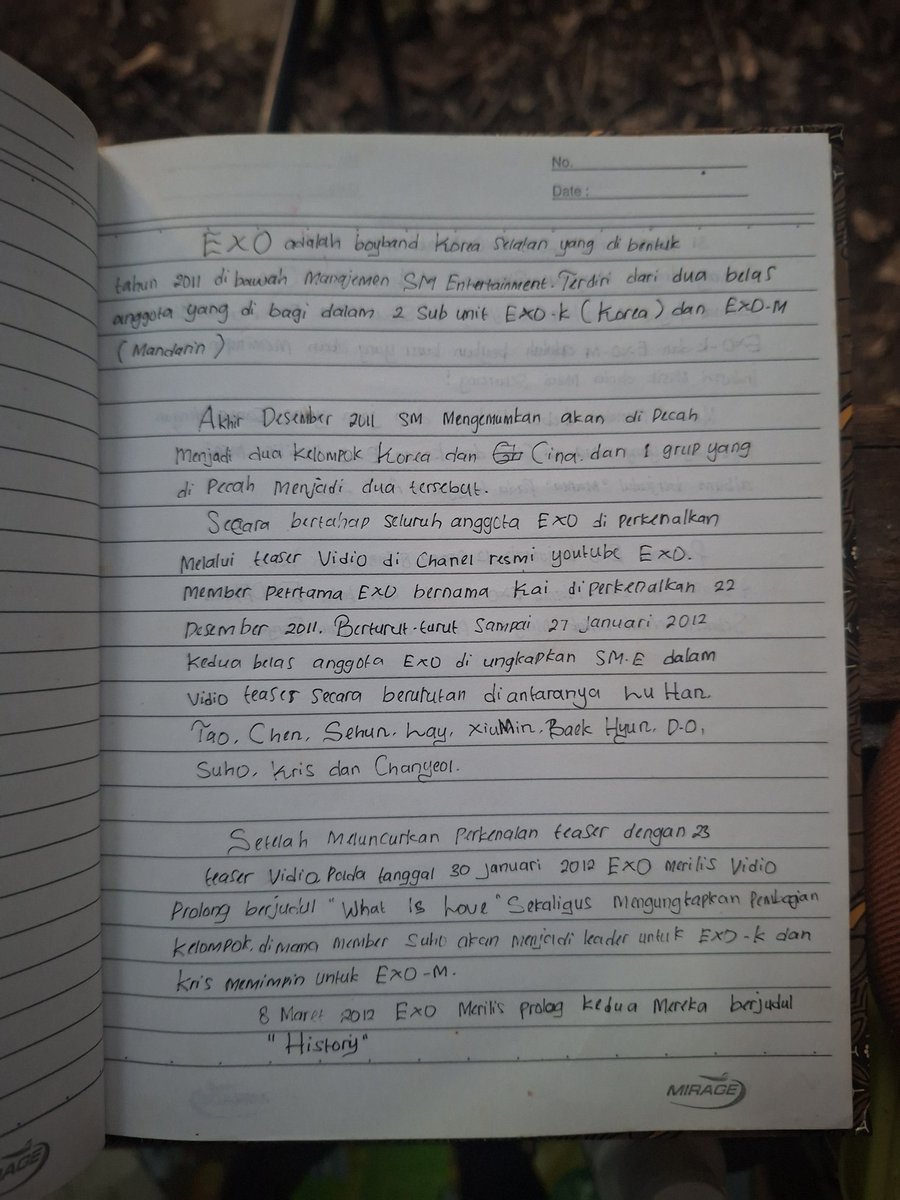 No.
Date :
EXO adalah boyband Korea Selatan yang di bentuk
tahun 2011 di bawah Manajemen SM Entertainment. Terdiri dari dua belas
anggota yang di bagi dalam 2 Sub unit EXO-k (Korea) dan EXO-M
(Mandarin)
Akhir Desember 2011 SM Mengemumkan akan di Pecah
Menjadi dua Kelompok Korea dan Cina. dan 1 grup yang
di Pecah Menjadi dua tersebut.
Secara bertahap seluruh anggota EXO di perkenalkan
Melalui teaser Vidio di Chanel resmi youtube EXO.
Member Petrtama EXO bernama Kai diperkenalkan 22
Desember 2011. Berturut-turut Sampai 27 Januari 2012
Kedua belas anggota EXO di ungkapkan SM.E dalam
Vidio teaser Secara berurutan diantaranya Lu Han,
Tao, Chen, Sehun, Lay, XiuMin, Baek Hyun, D.O,
Suho, Kris dan Chanyeol.
Setelah Meluncurkan Perkenalan teaser dengan 23
teaser Vidio. Pada tanggal 30 Januari 2012 EXO Merilis Vidio
Prolong berjudul "What Is Love" Sekaligus Mengungkapkan Pembagian
Kelompok. dimana member Suho akan menjadi leader untuk EXO-k dan
Kris memimpin untuk EXO-M.
8 Maret 2012 EXO Merilis prolog kedua Mereka berjudul
"History"
MIRAGE
RAGE